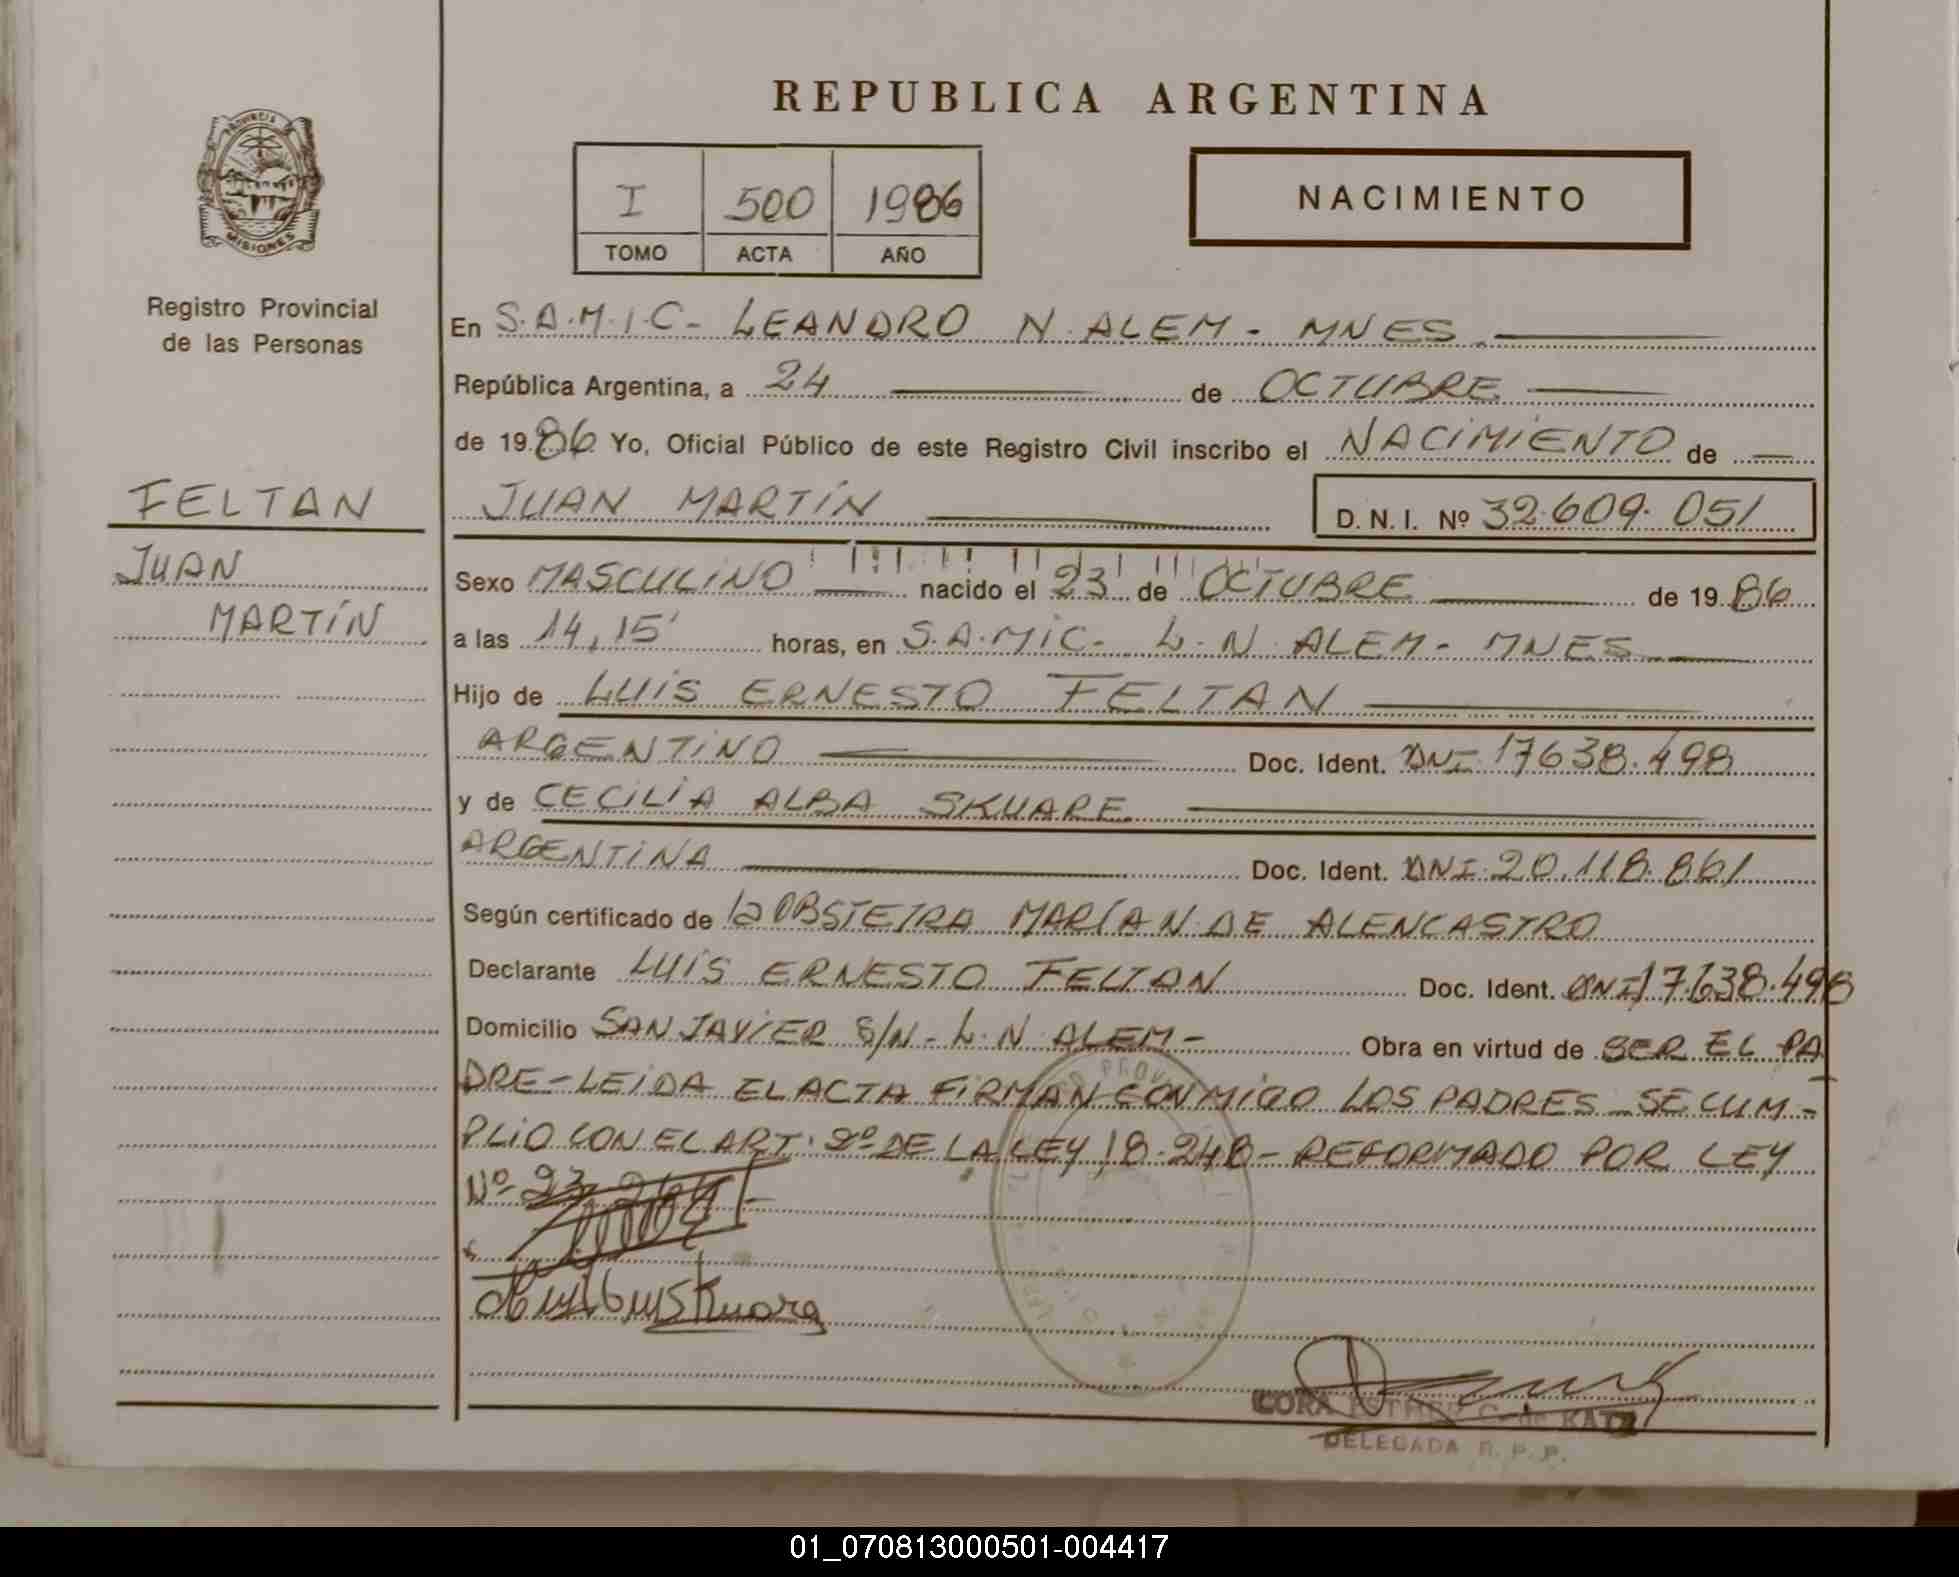 REPUBLICA ARGENTINA
PROVINCIA DE
MISIONES
Registro Provincial
de las Personas
I 500 1986
TOMO ACTA AÑO
NACIMIENTO
En S.A.M.I.C- LEANDRO N. ALEM - MNES.
República Argentina, a 24 de OCTUBRE
de 19 86 Yo, Oficial Público de este Registro Civil inscribo el NACIMIENTO de
FELTAN
JUAN MARTÍN D. N. I. Nº 32.609.051
JUAN
MARTÍN
Sexo MASCULINO nacido el 23 de OCTUBRE de 19 86
a las 14,15' horas, en S.A.MIC- L.N. ALEM - MNES
Hijo de LUIS ERNESTO FELTAN
ARGENTINO Doc. Ident. DNI 17638.498
y de CECILIA ALBA SKUARE
ARGENTINA Doc. Ident. DNI 20.118.861
Según certificado de la OBSTETRA MARÍA N. DE ALENCASTRO
Declarante LUIS ERNESTO FELTAN Doc. Ident. DNI 17.638.498
Domicilio SAN JAVIER S/N - L.N. ALEM - Obra en virtud de SER EL PA
DRE - LEIDA EL ACTA FIRMAN CONMIGO LOS PADRES SE CUM-
PLIO CON EL ART. 2º DE LA LEY 18.248 - REFORMADO POR LEY
Nº 23.264
Skuara
CORA ESTHER C. de KATZ
DELEGADA R. P. P.
01_070813000501-004417